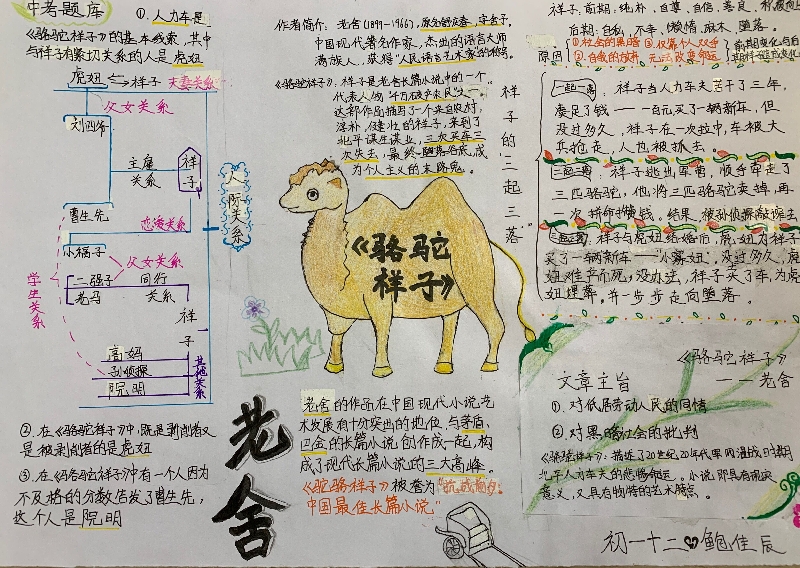 中考题库
①.人力车是
《骆驼祥子》的基本线索,其中
与祥子有紧切关系的人是虎妞
虎妞
祥子
夫妻关系
父女关系
刘四爷
主雇
关系
祥
子
曹先生
恋爱关系
小福子
父女关系
二强子
同行
老马
关系
学生关系
祥
子
高妈
孙侦探
阮明
其他关系
人际关系
②.在《骆驼祥子》中,既是剥削者又
是被剥削者的是虎妞
③.在《骆驼祥子》中有一个人因为
不及格的分数告发了曹先生,
这个人是阮明
作者简介:老舍(1899-1966),原名舒庆春,字舍予。
中国现代著名作家,杰出的语言大师
满族人,获得“人民语言艺术家”的称号。
《骆驼祥子》:祥子是老舍长篇小说中的一个
代表人物
这部作品描写了一个来自农村,
淳朴,健壮的祥子,来到了
北平谋生谋业,三次买车三
次失去,最终堕落
为个人主义的末路鬼。
祥子的“三起三落”
《骆驼
祥子》
老舍
老舍的作品在中国现代小说艺
术发展有十分突出的地位,与茅盾、
巴金的长篇小说创作成一起,构
成了现代长篇小说的三大高峰。
《驼骆祥子》被誉为“抗战前夕,
中国最佳长篇小说”
祥子前期:纯朴,自尊,自信,善良,
后期:自私,不幸,懒惰,麻木,堕落。
原因
①社会的黑暗
②自我的放弃
③仅靠个人双手
无法改变命运
前期变化与后
一起一落:祥子当人力车夫苦干了三年,
凑足了钱——一百元买了一辆新车,但
没过多久,祥子在一次拉中,车被大
兵抢走,人也被抓去。
二起二落:祥子逃出军营,顺手牵走了
三匹骆驼,他将三匹骆驼卖掉,再
一次拼命攒钱,结果,被孙侦探敲诈去
三起三落:祥子与虎妞结婚后,虎妞为祥子
买了一辆新车——“小寡妇”,没过多久,虎
妞难产而死,没办法,祥子卖了车,为虎
妞埋葬,并一步步走向堕落。
《骆驼祥子》
——老舍
文章主旨
①.对低层劳动人民的同情
②.对黑暗社会的批判
《骆驼祥子》:描述了20世纪20年代军阀混战时期
北平人力车夫的悲惨命运。小说即具有现实
意义,又具有独特的艺术特点。
初一十二 鲍佳辰